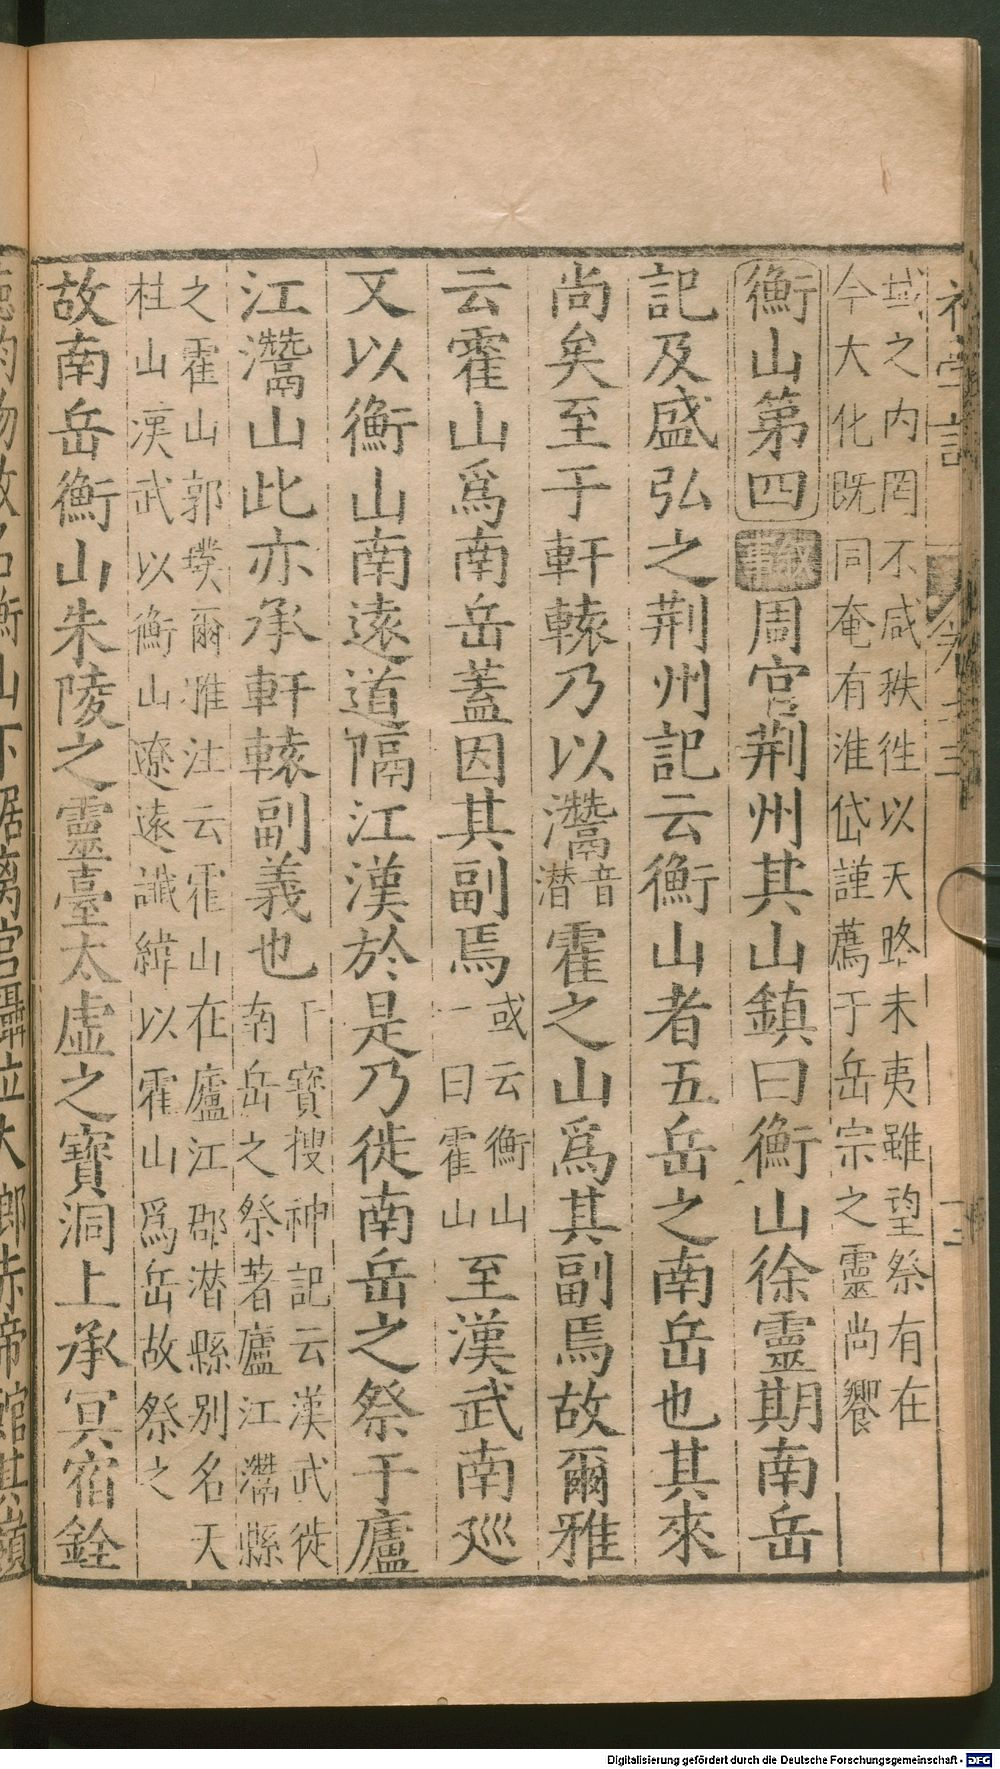 域之内罔不咸秩徃以天畧未夷雖望祭有在
今大化既同奄有淮岱謹薦于岳宗之靈尚饗
衡山第四 敘事 周官荆州其山鎮曰衡山徐靈期南岳
記及盛弘之荆州記云衡山者五岳之南岳也其來
尚矣至于軒轅乃以灊音潛霍之山爲其副焉故爾雅
云霍山爲南岳蓋因其副焉或云衡山一曰霍山至漢武南廵
又以衡山南遠道隔江漢於是乃徙南岳之祭于廬
江灊山此亦承軒轅副義也干寶搜神記云漢武徙南岳之祭著廬江灊縣
之霍山郭璞爾雅注云霍山在廬江郡潛縣别名天
柱山漢武以衡山遼遠讖緯以霍山爲岳故祭之
故南岳衡山朱陵之靈臺太虚之寶洞上承冥宿銓
Digitalisierung gefördert durch die Deutsche Forschungsgemeinschaft - DFG